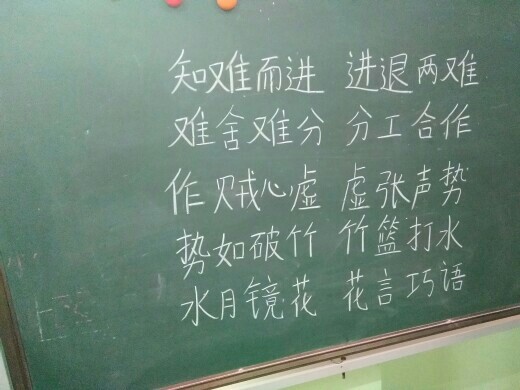 知难而进 进退两难
难舍难分 分工合作
作贼心虚 虚张声势
势如破竹 竹篮打水
水月镜花 花言巧语